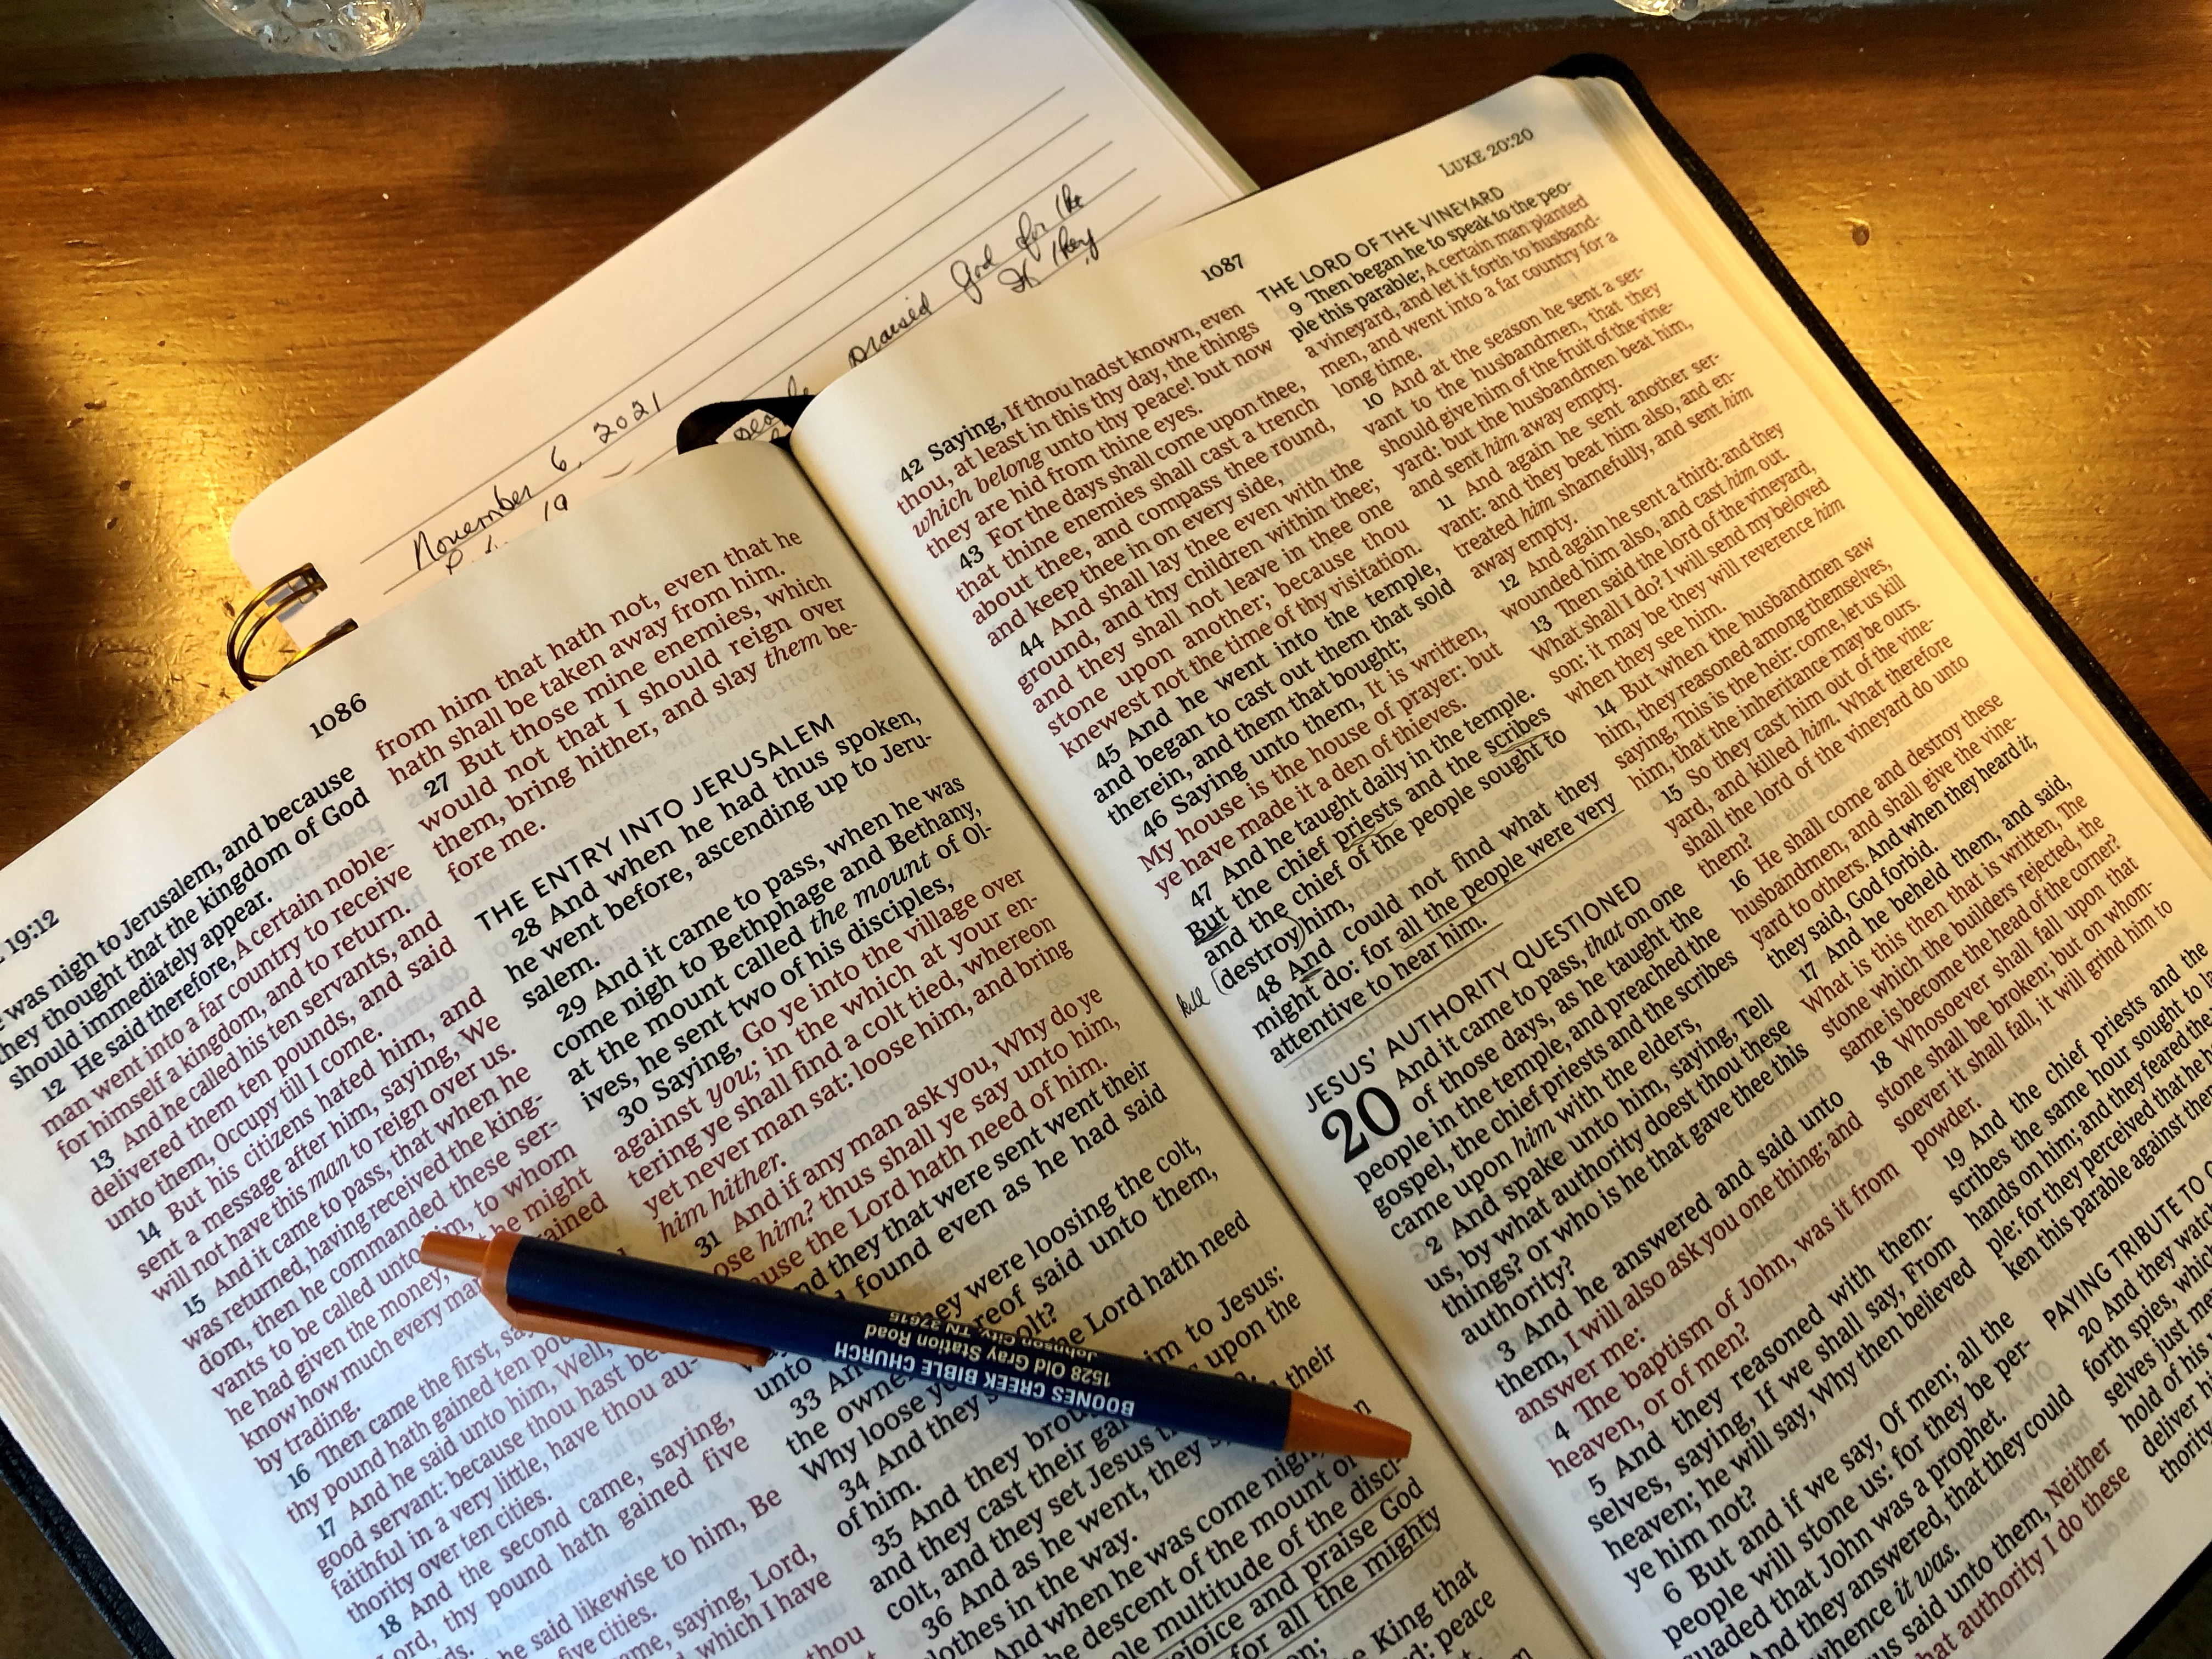 November 6, 2021
19
praised God for the
If they
1086
19:12
was nigh to Jerusalem, and because
they thought that the kingdom of God
should immediately appear.
12 He said therefore, A certain noble-
man went into a far country to receive
for himself a kingdom, and to return.
13 And he called his ten servants, and
delivered them ten pounds, and said
unto them, Occupy till I come.
14 But his citizens hated him, and
sent a message after him, saying, We
will not have this man to reign over us.
15 And it came to pass, that when he
was returned, having received the king-
dom, then he commanded these ser-
vants to be called unto him, to whom
he had given the money, he might
know how much every man gained
by trading.
16 Then came the first, say
thy pound hath gained ten pou
17 And he said unto him, Well,
good servant: because thou hast be
faithful in a very little, have thou au-
thority over ten cities.
18 And the second came, saying,
Lord, thy pound hath gained five
he said likewise to him, Be
five cities.
me, saying, Lord,
which I have
thou
from him that hath not, even that he
hath shall be taken away from him.
27 But those mine enemies, which
would not that I should reign over
them, bring hither, and slay them be-
fore me.
THE ENTRY INTO JERUSALEM
28 And when he had thus spoken,
he went before, ascending up to Jeru-
salem.
29 And it came to pass, when he was
come nigh to Bethphage and Bethany,
at the mount called the mount of Ol-
ives, he sent two of his disciples,
30 Saying, Go ye into the village over
against you; in the which at your en-
tering ye shall find a colt tied, whereon
yet never man sat: loose him, and bring
him hither.
31 And if any man ask you, Why do ye
ose him? thus shall ye say unto him,
ause the Lord hath need of him.
nd they that were sent went their
found even as he had said
unto
33 An they were loosing the colt,
the owne ereof said unto them,
Why loose ye olt?
34 And they s he Lord hath need
of him.
35 And they brou im to Jesus:
and they cast their gar upon the
colt, and they set Jesus
36 And as he went, they s their
lothes in the way.
And when he was come nigh, n
he descent of the mount of
ole multitude of the disci-
ejoice and praise God
for all the mighty
en;
he King that
d: peace
BOONES CREEK BIBLE CHURCH
1528 Old Gray Station Road
Johnson City, TN 37615
1087
LUKE 20:20
42 Saying, If thou hadst known, even
thou, at least in this thy day, the things
which belong unto thy peace! but now
they are hid from thine eyes.
43 For the days shall come upon thee,
that thine enemies shall cast a trench
about thee, and compass thee round,
and keep thee in on every side,
44 And shall lay thee even with the
ground, and thy children within thee;
and they shall not leave in thee one
stone upon another; because thou
knewest not the time of thy visitation.
45 And he went into the temple,
and began to cast out them that sold
therein, and them that bought;
46 Saying unto them, It is written,
My house is the house of prayer: but
ye have made it a den of thieves.
47 And he taught daily in the temple.
But the chief priests and the scribes
and the chief of the people sought to
kill (destroy) him,
48 And could not find what they
might do: for all the people were very
attentive to hear him.
JESUS' AUTHORITY QUESTIONED
20 And it came to pass, that on one
of those days, as he taught the
people in the temple, and preached the
gospel, the chief priests and the scribes
came upon him with the elders,
2 And spake unto him, saying, Tell
us, by what authority doest thou these
things? or who is he that gave thee this
authority?
3 And he answered and said unto
them, I will also ask you one thing; and
answer me:
4 The baptism of John, was it from
heaven, or of men?
5 And they reasoned with them-
selves, saying, If we shall say, From
heaven; he will say, Why then believed
ye him not?
6 But and if we say, Of men; all the
people will stone us: for they be per-
suaded that John was a prophet.
And they answered, that they could
whence it was.
us said unto them, Neither
hat authority I do these
THE LORD OF THE VINEYARD
9 Then began he to speak to the peo-
ple this parable; A certain man planted
a vineyard, and let it forth to husband-
men, and went into a far country for a
long time.
10 And at the season he sent a ser-
vant to the husbandmen, that they
should give him of the fruit of the vine-
yard: but the husbandmen beat him,
and sent him away empty.
11 And again he sent another ser-
vant: and they beat him also, and en-
treated him shamefully, and sent him
away empty.
12 And again he sent a third: and they
wounded him also, and cast him out.
13 Then said the lord of the vineyard,
What shall I do? I will send my beloved
son: it may be they will reverence him
when they see him.
14 But when the husbandmen saw
him, they reasoned among themselves,
saying, This is the heir: come, let us kill
him, that the inheritance may be ours.
15 So they cast him out of the vine-
yard, and killed him. What therefore
shall the lord of the vineyard do unto
them?
16 He shall come and destroy these
husbandmen, and shall give the vine-
yard to others. And when they heard it,
they said, God forbid.
17 And he beheld them, and said,
What is this then that is written, The
stone which the builders rejected, the
same is become the head of the corner?
18 Whosoever shall fall upon that
stone shall be broken; but on whom-
soever it shall fall, it will grind him to
powder.
19 And the chief priests and the
scribes the same hour sought to la
hands on him; and they feared the
ple: for they perceived that he h
ken this parable against the
PAYING TRIBUTE TO
20 And they watc
forth spies, which
selves just me
hold of his
deliver hi
thority